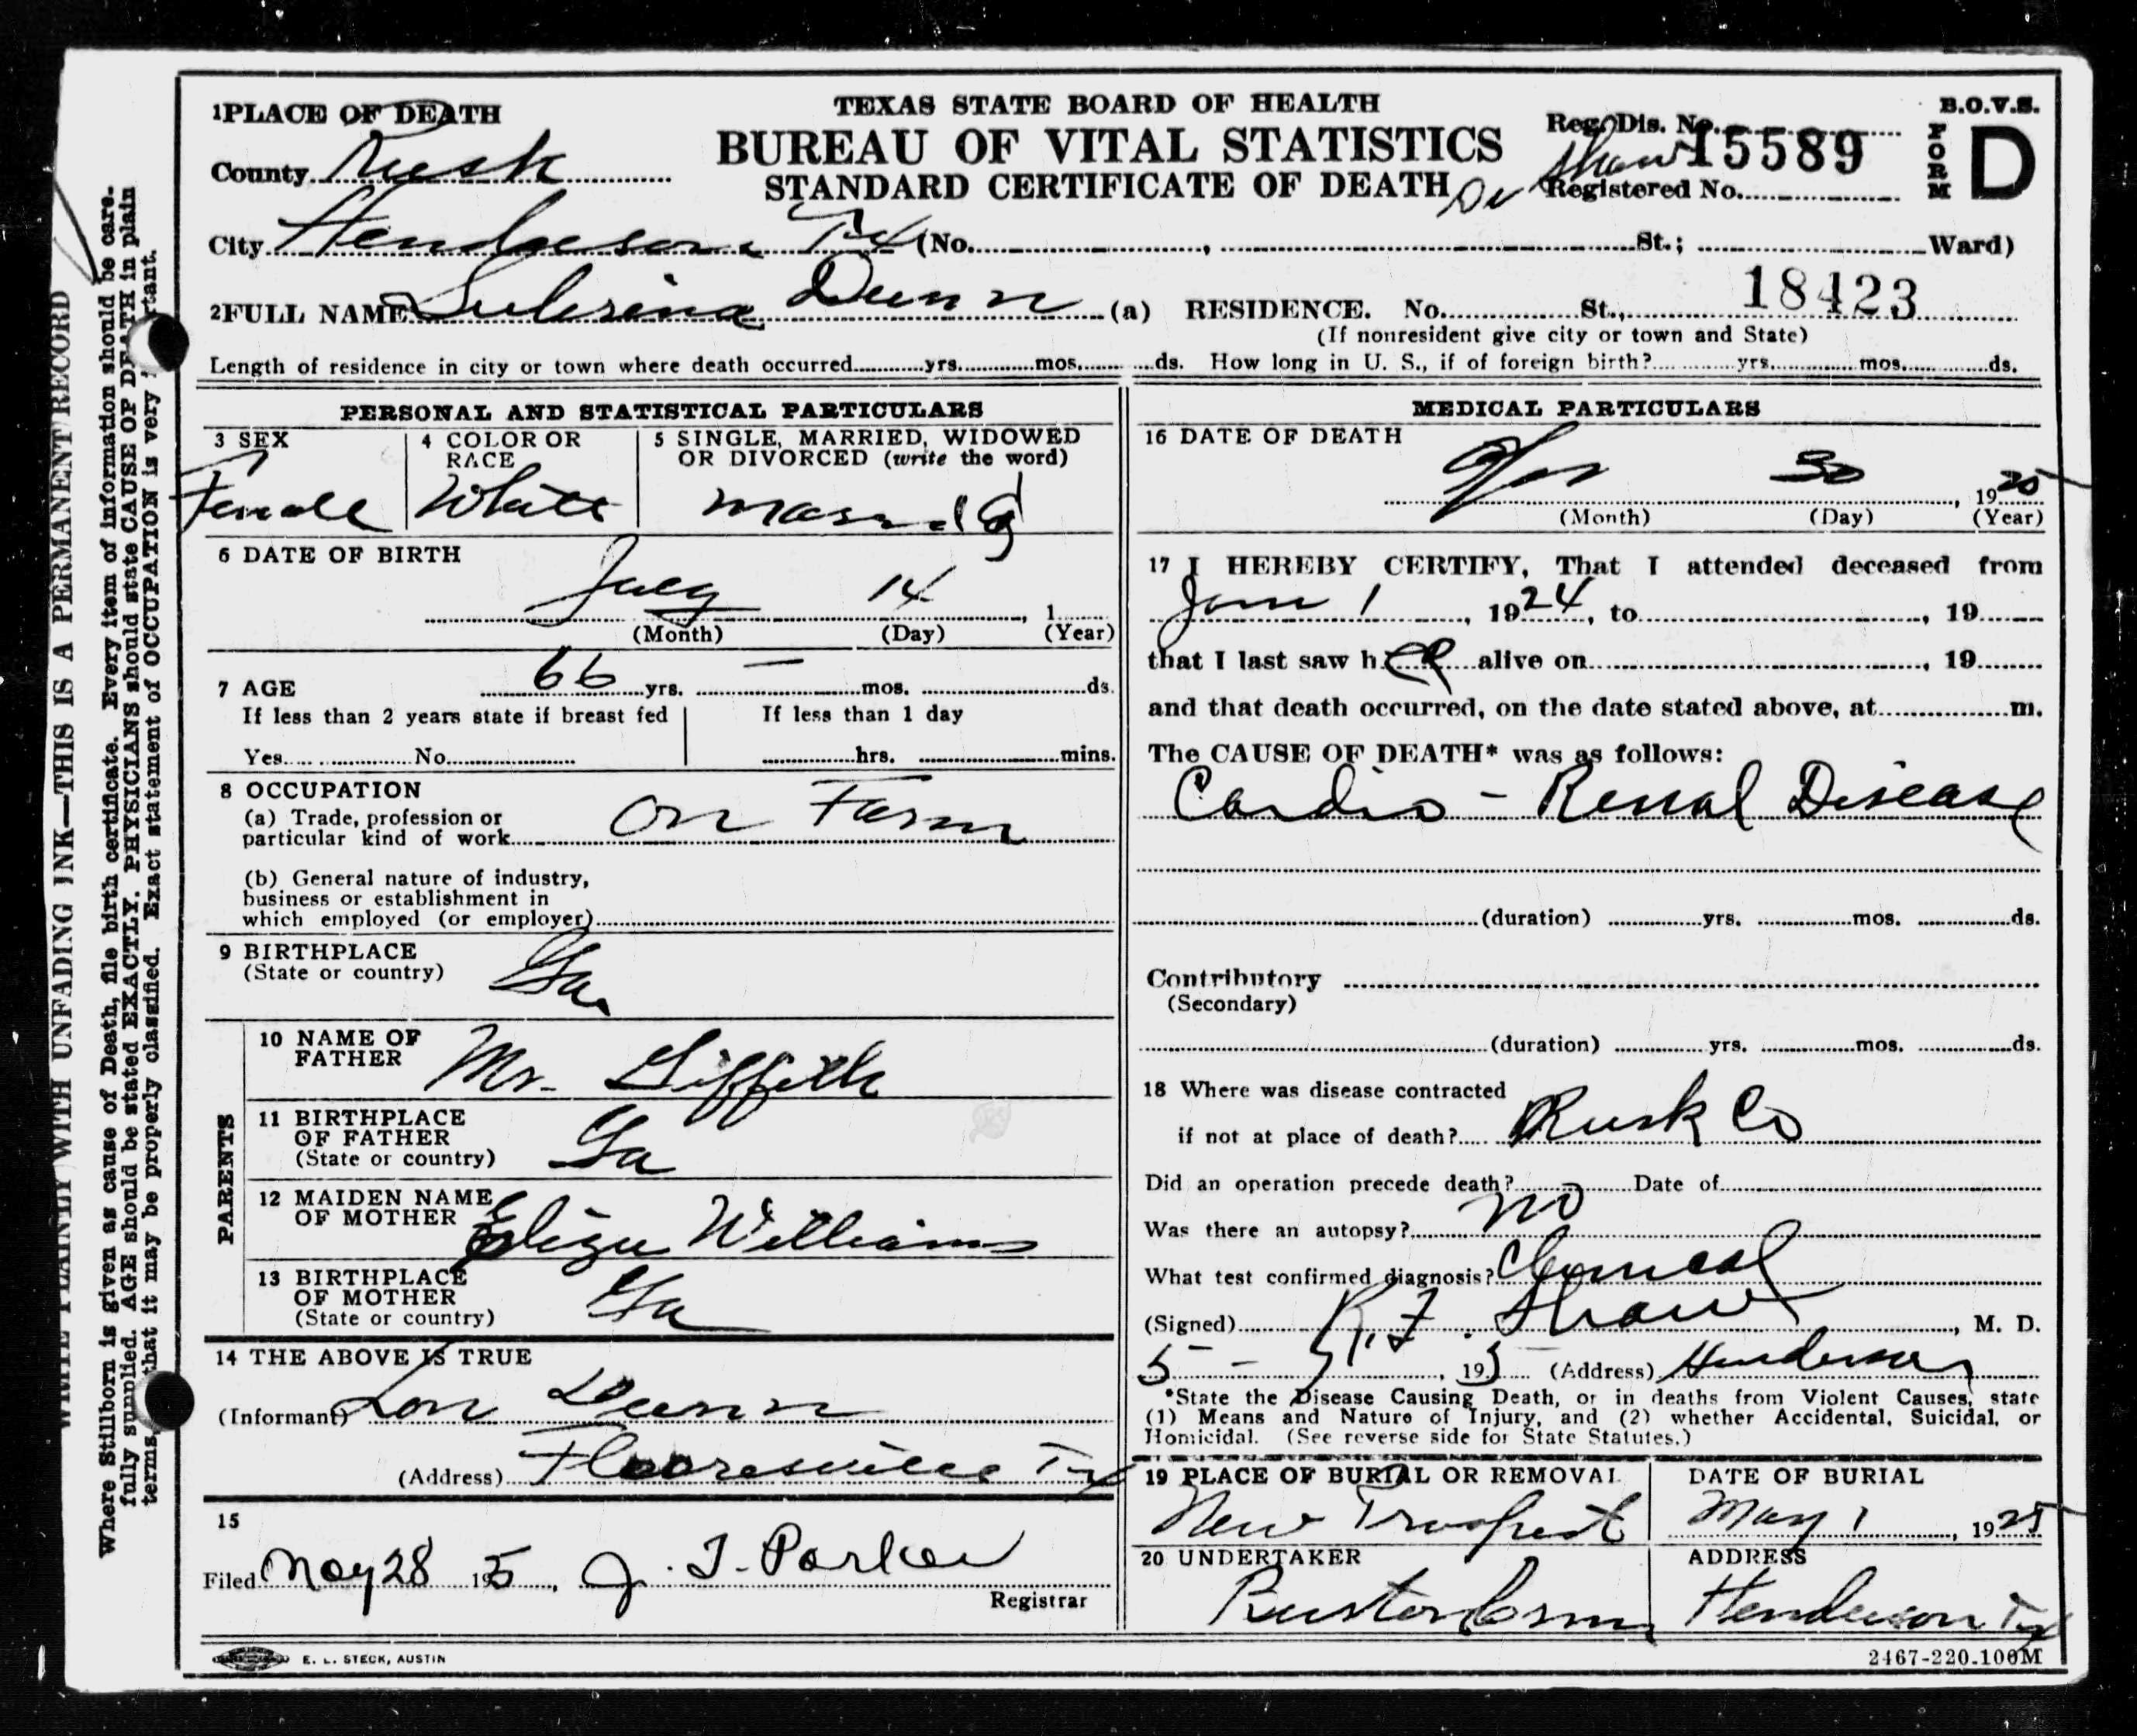 1 PLACE OF DEATH
TEXAS STATE BOARD OF HEALTH
BUREAU OF VITAL STATISTICS
STANDARD CERTIFICATE OF DEATH
B.O.V.S.
FORM D
Reg. Dis. No. 15589
Dr Shaw
Registered No.
County Rusk
City Henderson Tx (No. , St.; Ward)
2 FULL NAME Dunn (a) RESIDENCE. No. St., 18423
(If nonresident give city or town and State)
Length of residence in city or town where death occurred yrs. mos. ds. How long in U. S., if of foreign birth? yrs. mos. ds.
PERSONAL AND STATISTICAL PARTICULARS
3 SEX
Female
4 COLOR OR RACE
White
5 SINGLE, MARRIED, WIDOWED
OR DIVORCED (write the word)
Married
6 DATE OF BIRTH
July 14 , 1
(Month) (Day) (Year)
7 AGE 66 yrs. — mos. ds.
If less than 2 years state if breast fed
If less than 1 day
Yes No
hrs. mins.
8 OCCUPATION
(a) Trade, profession or
particular kind of work On Farm
(b) General nature of industry,
business or establishment in
which employed (or employer)
9 BIRTHPLACE
(State or country) Ga.
PARENTS
10 NAME OF
FATHER Mr. Giffith
11 BIRTHPLACE
OF FATHER
(State or country) Ga
12 MAIDEN NAME
OF MOTHER Eliza Williams
13 BIRTHPLACE
OF MOTHER
(State or country) Ga
14 THE ABOVE IS TRUE
(Informant) Lon Dunn
(Address) Flooresville Tx
15
Filed May 28 1 5, J. T. Parker
Registrar
MEDICAL PARTICULARS
16 DATE OF DEATH
30 , 1925
(Month) (Day) (Year)
17 I HEREBY CERTIFY, That I attended deceased from
1 , 1924, to , 19
that I last saw her alive on , 19
and that death occurred, on the date stated above, at m.
The CAUSE OF DEATH* was as follows:
Cardio - Renal Disease
(duration) yrs. mos. ds.
Contributory
(Secondary)
(duration) yrs. mos. ds.
18 Where was disease contracted
if not at place of death? Rusk Co
Did an operation precede death? Date of
Was there an autopsy? no
What test confirmed diagnosis?
(Signed) Shaw , M. D.
5 - , 19 5 (Address) Henderson
*State the Disease Causing Death, or in deaths from Violent Causes, state
(1) Means and Nature of Injury, and (2) whether Accidental, Suicidal, or
Homicidal. (See reverse side for State Statutes.)
19 PLACE OF BURIAL OR REMOVAL
New Prospect
DATE OF BURIAL
May 1 , 1925
20 UNDERTAKER
ADDRESS
Henderson Tx
E. L. STECK, AUSTIN
2467-220-100M
WRITE PLAINLY WITH UNFADING INK—THIS IS A PERMANENT RECORD
Where Stillborn is given as cause of Death, file birth certificate. Every item of information should be care-
fully supplied. AGE should be stated EXACTLY. PHYSICIANS should state CAUSE OF DEATH in plain
terms, that it may be properly classified. Exact statement of OCCUPATION is very